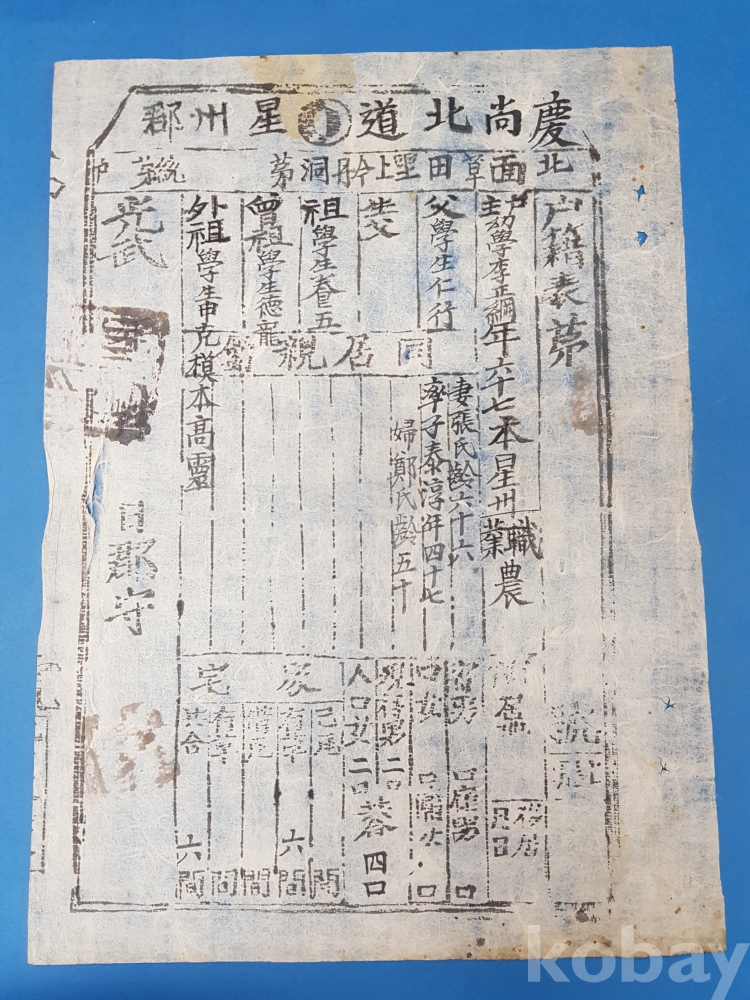 慶尚北道星州郡
北面草田里上今丹洞第 統第 戶
戶籍表第 號
主幼學李正綱年六十七本星州 職業農
父學生仁行
生父
祖學生春五
曾祖學生德龍
外祖學生申克模本高靈
同居親屬
妻張氏齡六十六
率子泰淳年四十七
婦鄭氏齡五十
寄口男 口雇男 口
口女 口雇女 口
現存男二口
人口女二口 共四口
家宅
己有 間
有草六間
借有 間
有草 間
共合六間
移居 月 日
光武
日郡守
kobay